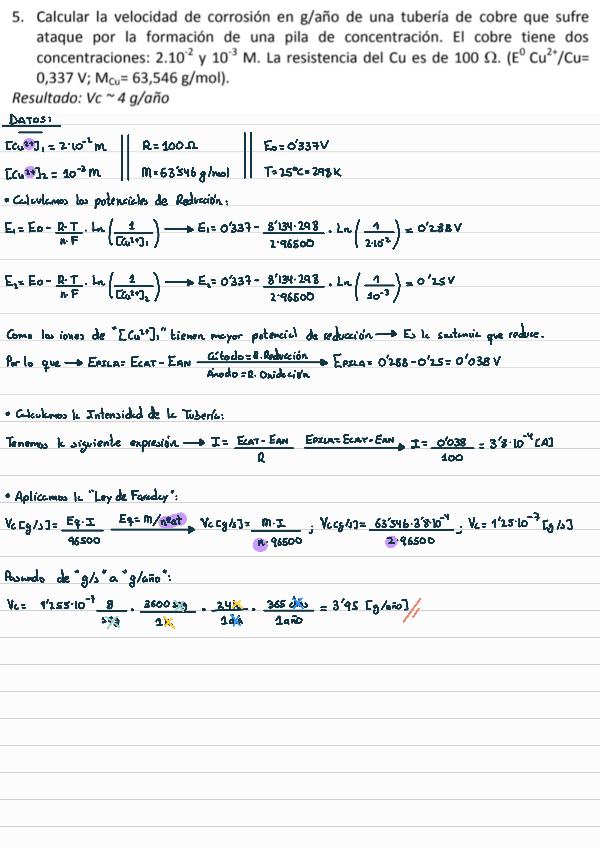 5. Calcular la velocidad de corrosión en g/año de una tubería de cobre que sufre
ataque por la formación de una pila de concentración. El cobre tiene dos
concentraciones: 2.10⁻² y 10⁻³ M. La resistencia del Cu es de 100 Ω. (E⁰ Cu²⁺/Cu=
0,337 V; M_Cu= 63,546 g/mol).
Resultado: Vc ~ 4 g/año
DATOS:
[Cu²⁺]₁ = 2·10⁻² M || R = 100 Ω || E₀ = 0'337V
[Cu²⁺]₂ = 10⁻³ M || M = 63'546 g/mol || T = 25°C = 298K
• Calculamos los potenciales de Reducción:
E₁ = E₀ - R·T/n·F · Ln(1/[Cu²⁺]₁) → E₁ = 0'337 - 8'134·298/2·96500 · Ln(1/2·10⁻²) = 0'288V
E₂ = E₀ - R·T/n·F · Ln(1/[Cu²⁺]₂) → E₂ = 0'337 - 8'134·298/2·96500 · Ln(1/10⁻³) = 0'25V
Como los iones de "[Cu²⁺]₁" tienen mayor potencial de reducción → Es la sustancia que reduce.
Por lo que → EPILA = ECAT - EAN Cátodo = R. Reducción / Ánodo = R. Oxidación → EPILA = 0'288 - 0'25 = 0'038 V
• Calculamos la Intensidad de la Tubería:
Tenemos la siguiente expresión → I = ECAT - EAN/R EPILA = ECAT - EAN → I = 0'038/100 = 3'8·10⁻⁴ [A]
• Aplicamos la "Ley de Faraday":
Vc [g/s] = Eq·I/96500 Eq = m/nºeat → Vc [g/s] = M·I/n·96500 ; Vc [g/s] = 63'546·3'8·10⁻⁴/2·96500 ; Vc = 1'25·10⁻⁷ [g/s]
Pasando de "g/s" a "g/año":
Vc = 1'255·10⁻⁷ g/seg · 3600 seg/1h · 24h/1día · 365 días/1año = 3'95 [g/año]